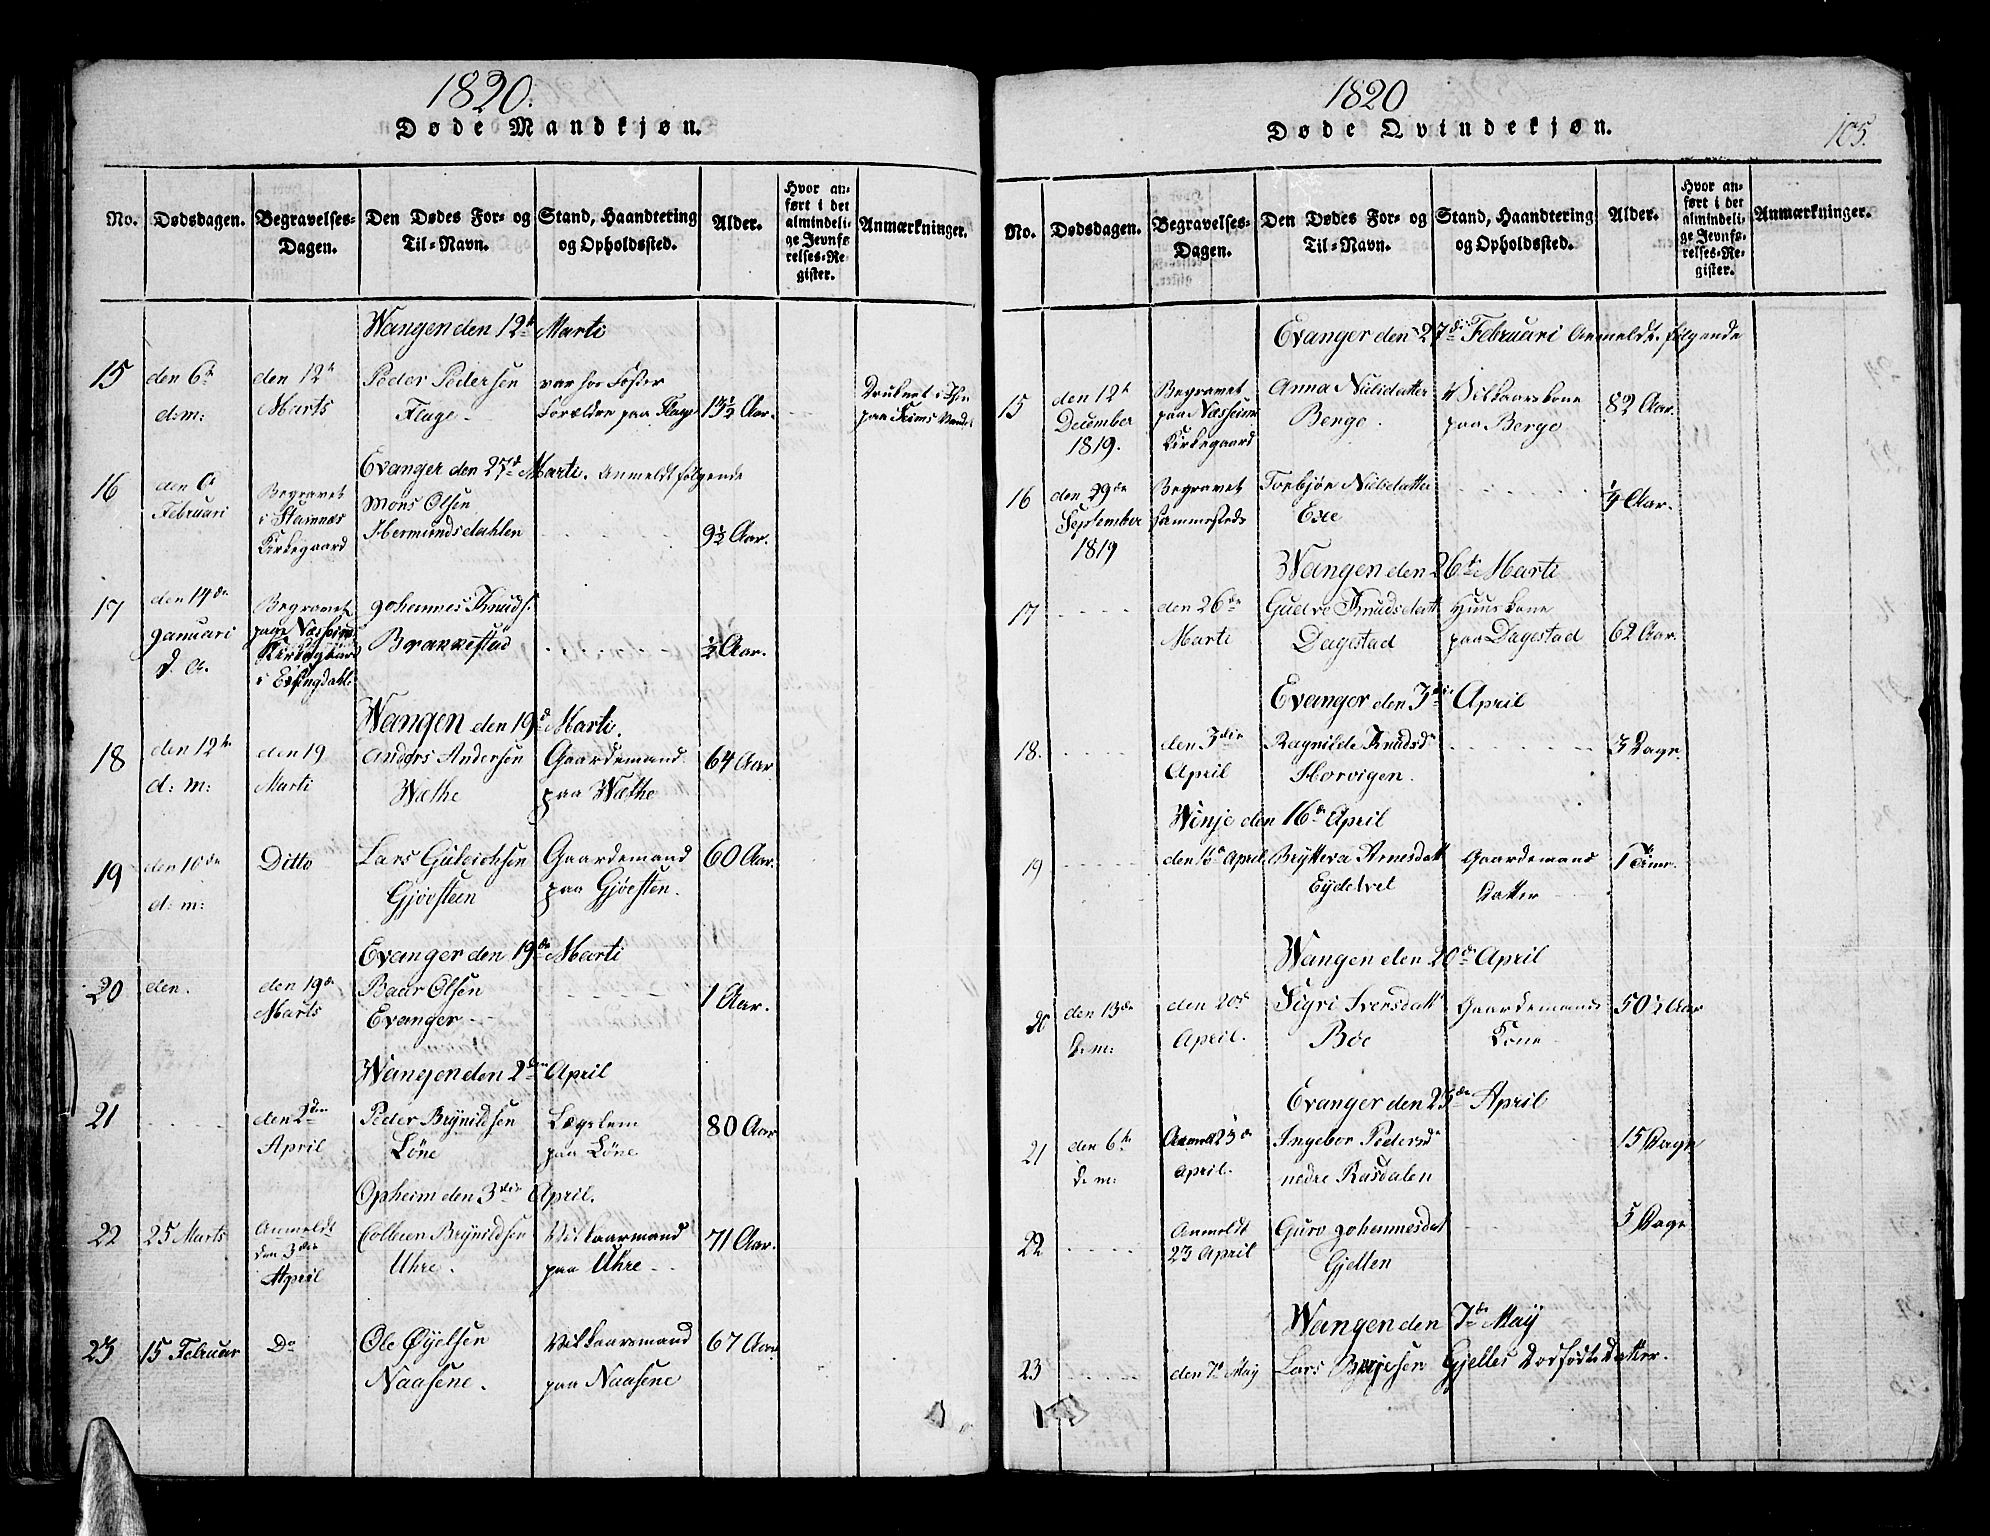 1820.
Døde Mandkjøn.
No.
Dødsdagen.
Begravelses-
Dagen.
Den Dødes For- og
Til-Navn.
Stand, Haandtering
og Opholdssted.
Alder.
Hvor an-
ført i det
almindeli-
ge Jevnfø-
relses-Re-
gister.
Anmærkninger.
Wangen den 12te Marti
15
den 6te
d: m:
den 12te
Marts
Peder Pedersen
Flage
var hos Foster
Forældre paa Flage
13½ Aar.
Druknet i
paa Seims Vandet
Evanger den 27de Marti. Anmeldt følgende
16
den 6te
Februari
Begravet
i Stamnæs
Kirkegaard
Mons Olsen
Hermundsdahlen
9½ Aar.
17
den 14de
Januari
d. a.
Begravet
paa Næsheims
Kirkegaard
i Exingdahl:
Johannes Knuds:
Brakkestad
½ Aar.
Wangen den 19de Marti.
18
den 12te
d: m:
den 19
Marti
Anders Andersen
Wæthe
Gaardemand
paa Wæthe
64 Aar
19
den 10de
d: m:
Ditto
Lars Gulichsen
Gjøssteen
Gaardemand
paa Gjøesten.
60 Aar.
Evanger den 19de Marti
20
den.
den 19de
Marts
Baar Olsen
Evanger
1 Aar.
Wangen den 2den April
21
den 2den
April
Peder Brynildsen
Løne
Lægslem
paa Løne
80 Aar
Opheim den 3die April.
22
25 Marts
Anmeldt
den 3die
April
Colbein Brynildsen
Uhre.
Vilkaarmand
paa Uhre
71 Aar.
23
15 Februar
Do
Ole Øyelsen
Naasene.
Vilkaarsmand
paa Naasene
67 Aar
1820
Døde Qvindekjøn.
105.
No.
Dødsdagen.
Begravelses-
Dagen.
Den Dødes For- og
Til-Navn.
Stand, Haandtering
og Opholdssted.
Alder.
Hvor an-
ført i det
almindeli-
ge Jevnfø-
relses-Re-
gister.
Anmærkninger.
Evanger den 27de Februari Anmeldt følgende
15
den 12te
December
1819.
Begravet
paa Næsheims
Kirkegaard
Anna Nielsdatter
Berge.
Vilkaarskone
paa Berge
82 Aar.
16
den 29de
September
1819
Begravet
sammesteds
Torbjør Nielsdatter
Exe
¼ Aar.
Wangen den 26te Marti
17
den 26de
Marti
Gudve Knudsdatt
Dagestad
Huuskone
paa Dagestad
62 Aar.
Evanger den 3die April
18.
den 3die
April
Ragnilde Knudsd
Horvigen.
3 Dage.
Winje den 16de April
19
den 16de April
Bryteva Arnesdatt
Eydetvet
Gaardemands
Datter
1 Time.
Wangen den 20de April
20
den 13de
d: m:
den 20de
April.
Sigri Iversdatt
Bøe
Gaardemands
Kone
50½ Aar
Evanger den 23de April
21
den 6te
d: m:
Anmeldt 23de
April.
Ingebor Pedersd
nedre Rasdalen
15 Dage
22
Anmeldt
23 April
Guro Johannesdat
Gjetten
5 Dage
Wangen den 7de May
23
den 7de May
Lars Børjesen Gjelles Dødfødte Datter.